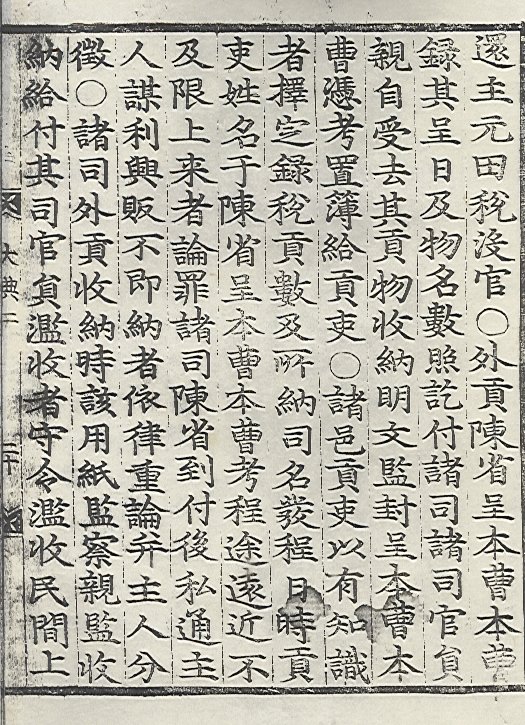 還主元田稅沒官○外貢陳省呈本曹本曹
録其呈日及物名數照訖付諸司諸司官負
親自受去其貢物收納明文監封呈本曹本
曹憑考置簿給貢吏○諸邑貢吏以有知識
者擇定録稅貢數及所納司名發程日時貢
吏姓名于陳省呈本曹本曹考程途遠近不
及限上来者論罪諸司陳省到付後私通主
人謀利興販不即納者依律重論并主人分
徵○諸司外貢收納時該用紙監察親監收
納給付其司官負濫收者守令濫收民間上
大典
二十